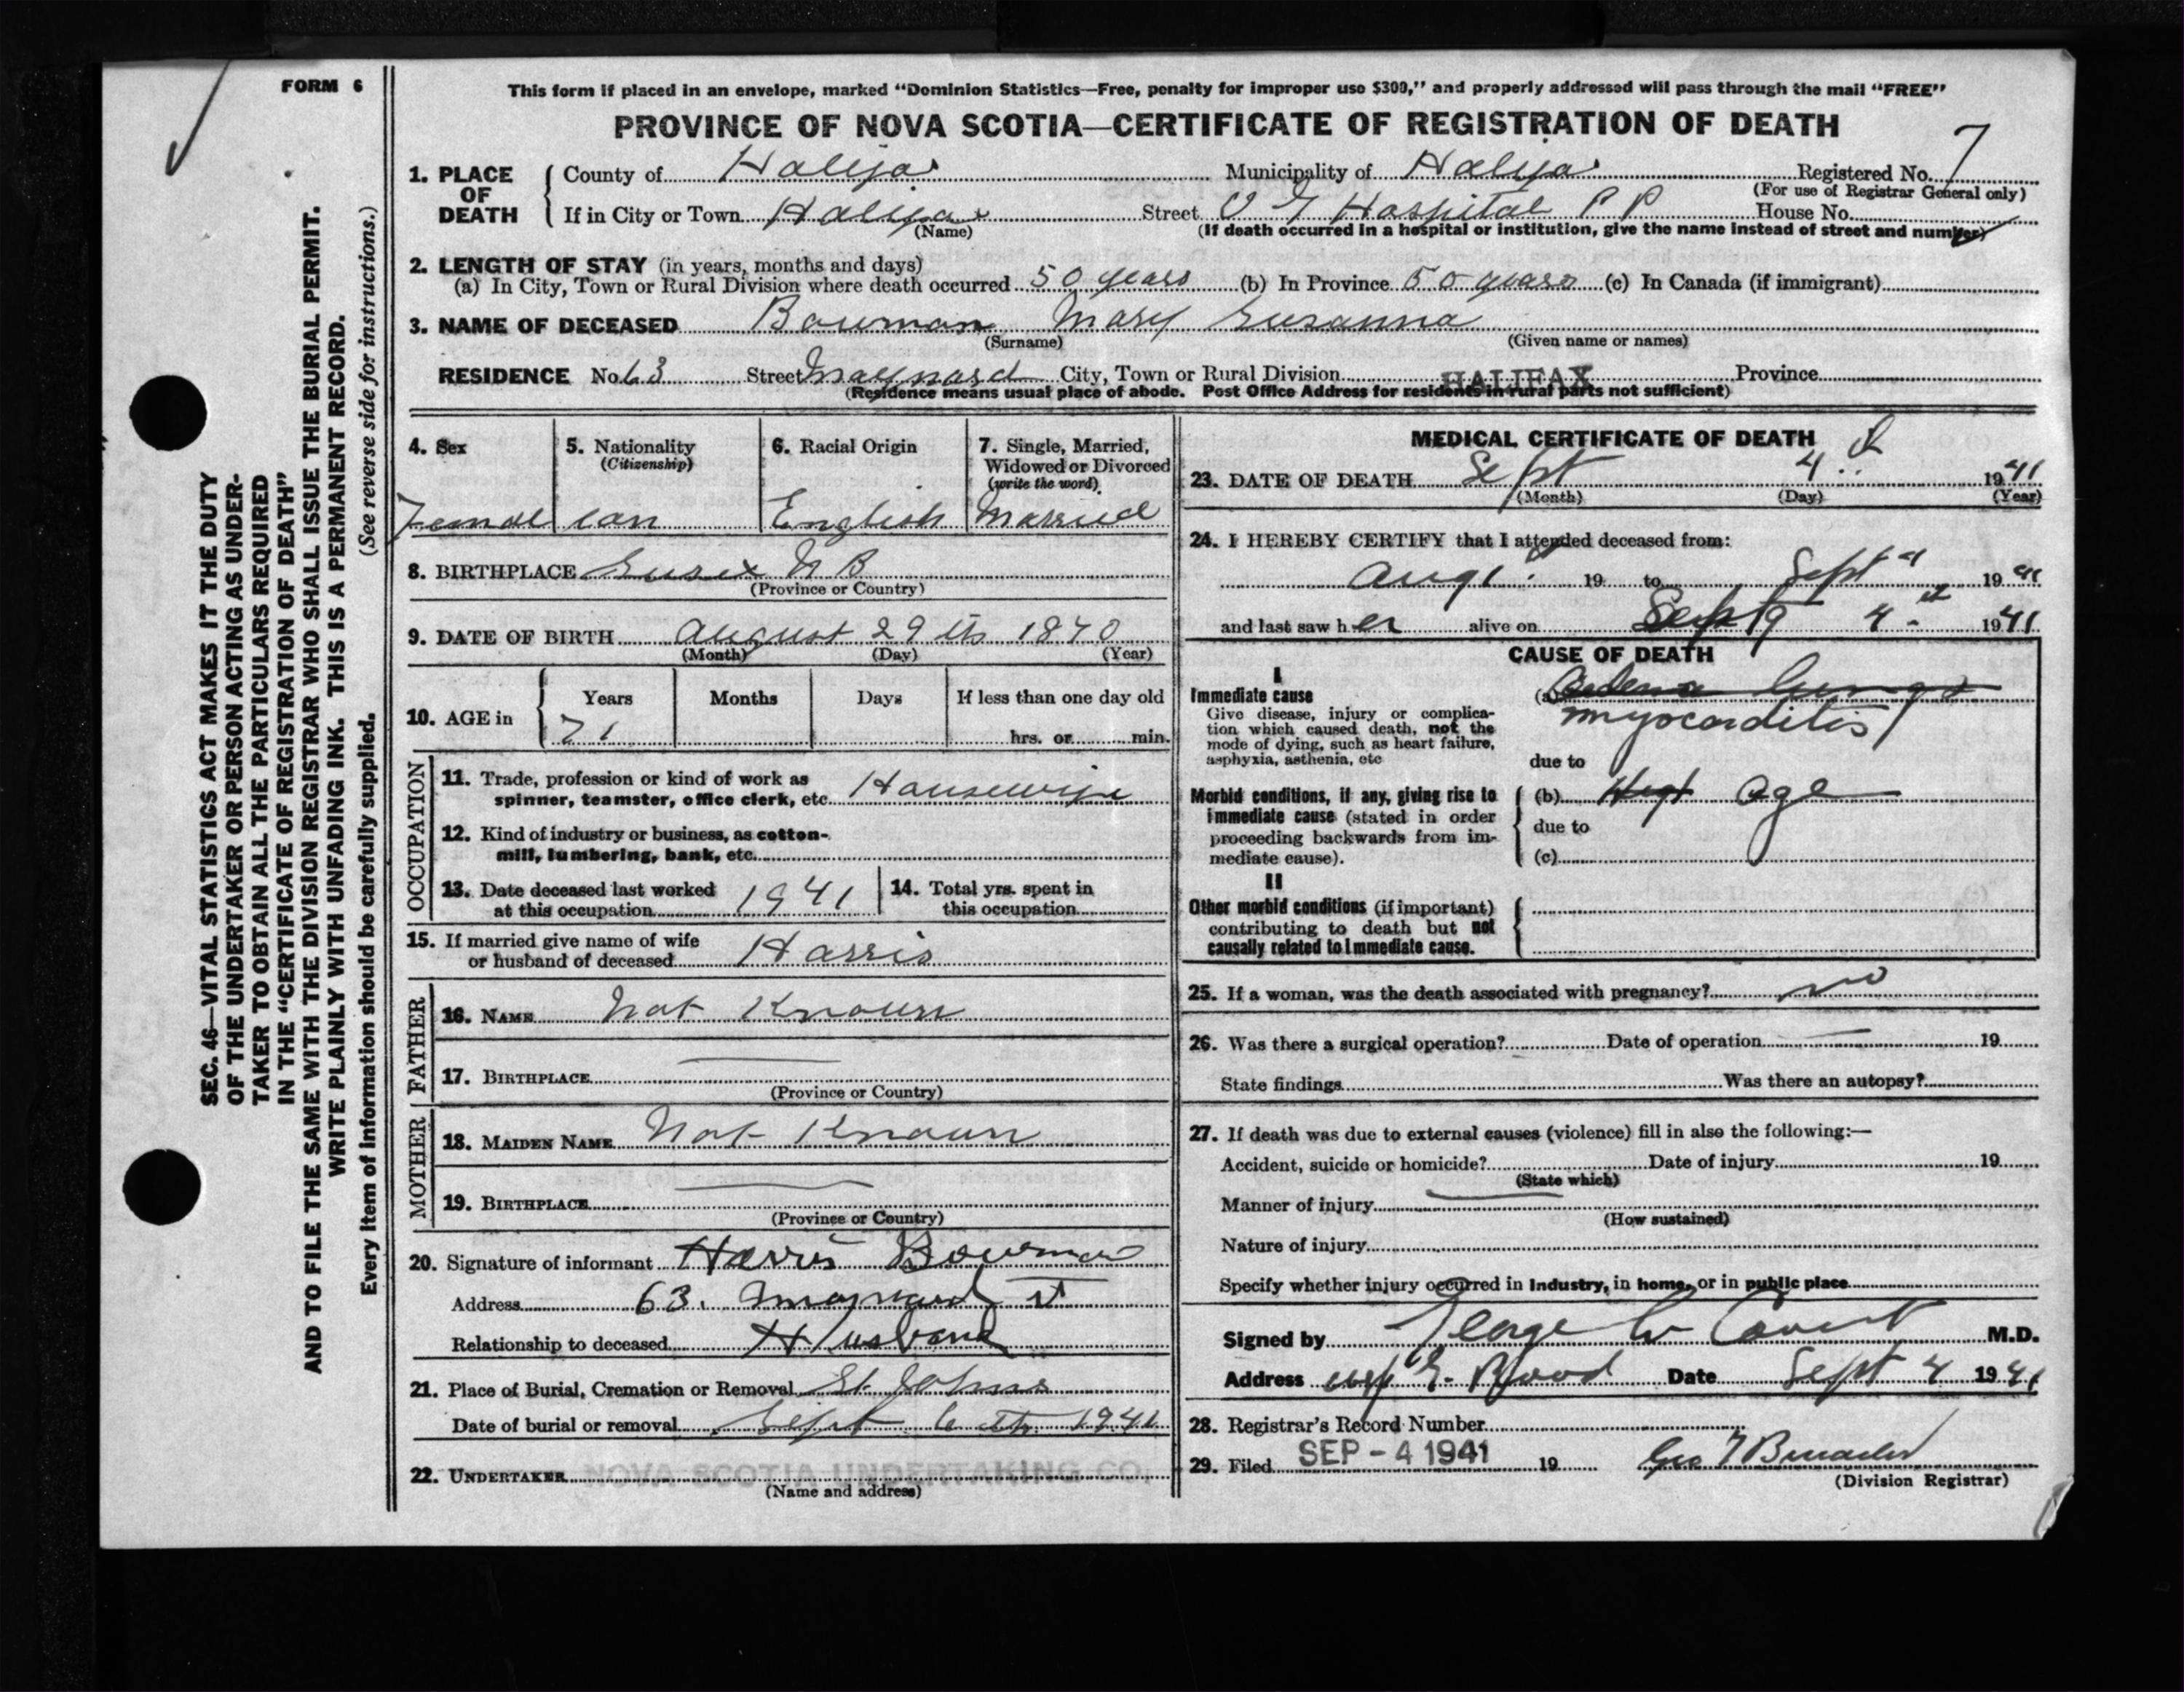 FORM 6
This form if placed in an envelope, marked "Dominion Statistics—Free, penalty for improper use $300," and properly addressed will pass through the mail "FREE"
PROVINCE OF NOVA SCOTIA—CERTIFICATE OF REGISTRATION OF DEATH
SEC. 46—VITAL STATISTICS ACT MAKES IT THE DUTY
OF THE UNDERTAKER OR PERSON ACTING AS UNDER-
TAKER TO OBTAIN ALL THE PARTICULARS REQUIRED
IN THE "CERTIFICATE OF REGISTRATION OF DEATH"
AND TO FILE THE SAME WITH THE DIVISION REGISTRAR WHO SHALL ISSUE THE BURIAL PERMIT.
WRITE PLAINLY WITH UNFADING INK. THIS IS A PERMANENT RECORD.
Every item of information should be carefully supplied. (See reverse side for instructions.)
1. PLACE OF DEATH County of Halifax Municipality of Halifax Registered No. 7
(For use of Registrar General only)
If in City or Town Halifax Street V G Hospital P P House No.
(Name) (If death occurred in a hospital or institution, give the name instead of street and number)
2. LENGTH OF STAY (in years, months and days)
(a) In City, Town or Rural Division where death occurred 50 years (b) In Province 50 years (c) In Canada (if immigrant)
3. NAME OF DECEASED Bowman Mary Susanna
(Surname) (Given name or names)
RESIDENCE No. 63 Street Maynard City, Town or Rural Division HALIFAX Province
(Residence means usual place of abode. Post Office Address for residents in rural parts not sufficient)
4. Sex 5. Nationality 6. Racial Origin 7. Single, Married,
(Citizenship) Widowed or Divorced
(write the word)
Female can English Married
8. BIRTHPLACE Susex N B
(Province or Country)
9. DATE OF BIRTH August 29 th 1870
(Month) (Day) (Year)
10. AGE in Years Months Days If less than one day old
71 hrs. or min.
OCCUPATION
11. Trade, profession or kind of work as
spinner, teamster, office clerk, etc. Housewife
12. Kind of industry or business, as cotton-
mill, lumbering, bank, etc.
13. Date deceased last worked 14. Total yrs. spent in
at this occupation 1941 this occupation
15. If married give name of wife
or husband of deceased Harris
FATHER
16. NAME Not Known
17. BIRTHPLACE
(Province or Country)
MOTHER
18. MAIDEN NAME Not Known
19. BIRTHPLACE
(Province or Country)
20. Signature of informant Harris Bowman
Address 63. Maynard St
Relationship to deceased Husband
21. Place of Burial, Cremation or Removal St Johns
Date of burial or removal Sept 6 th 1941
22. UNDERTAKER NOVA SCOTIA UNDERTAKING CO.
(Name and address)
MEDICAL CERTIFICATE OF DEATH
23. DATE OF DEATH Sept 4 th 1941
(Month) (Day) (Year)
24. I HEREBY CERTIFY that I attended deceased from:
Aug 1 19 to Sept 4 1941
and last saw her alive on Sept 4 th 1941
CAUSE OF DEATH
I
Immediate cause (a)
Give disease, injury or complica-
tion which caused death, not the
mode of dying, such as heart failure,
asphyxia, asthenia, etc
myocarditis
due to
Morbid conditions, if any, giving rise to
immediate cause (stated in order
proceeding backwards from im-
mediate cause).
(b) age
due to
(c)
II
Other morbid conditions (if important)
contributing to death but not
causally related to immediate cause.
25. If a woman, was the death associated with pregnancy? no
26. Was there a surgical operation? Date of operation 19
State findings Was there an autopsy?
27. If death was due to external causes (violence) fill in also the following:—
Accident, suicide or homicide? Date of injury 19
(State which)
Manner of injury
(How sustained)
Nature of injury
Specify whether injury occurred in industry, in home, or in public place
Signed by George W M.D.
Address Date Sept 4 1941
28. Registrar's Record Number
29. Filed SEP - 4 1941 19
(Division Registrar)